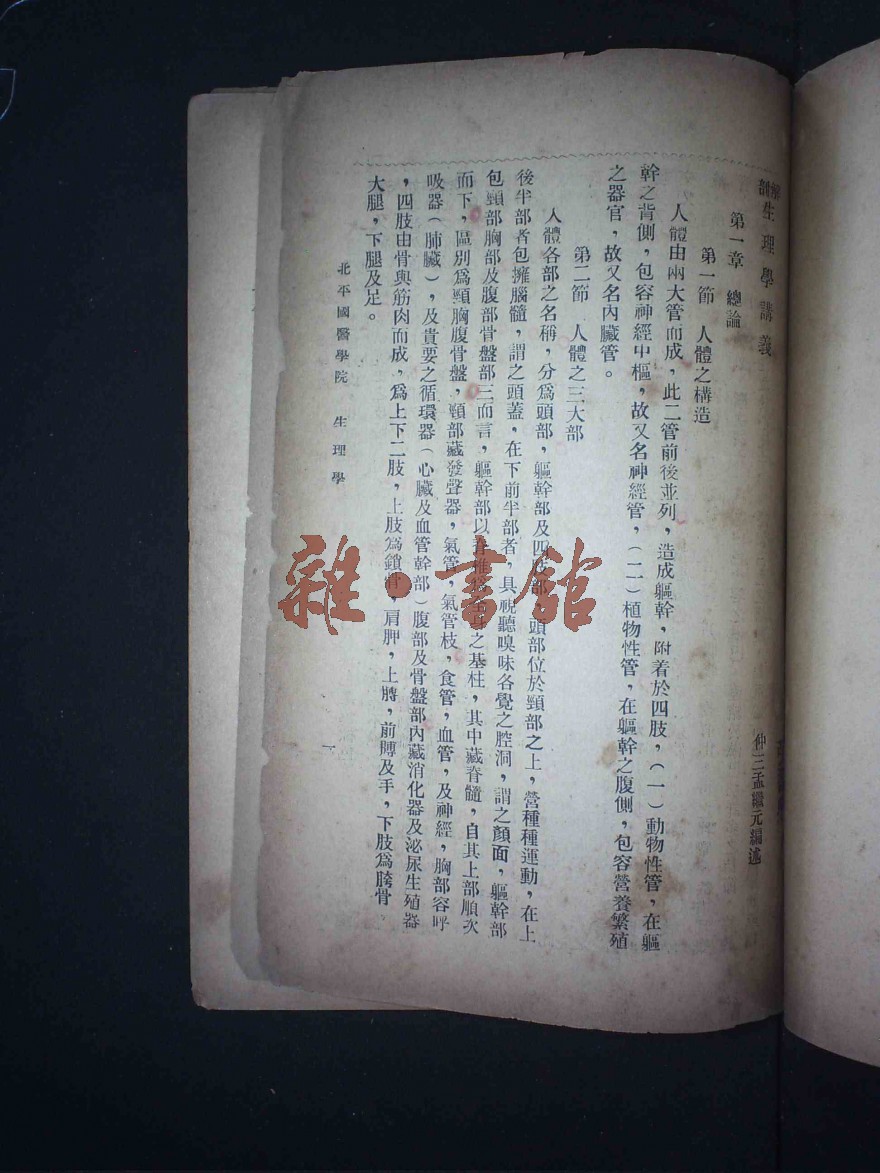 解剖生理學講義
仲三孟繼元編述
第一章　總論
第一節　人體之構造
人體由兩大管而成，此二管前後並列，造成軀幹，附着於四肢，（一）動物性管，在軀
幹之背側，包容神經中樞，故又名神經管，（二）植物性管，在軀幹之腹側，包容營養繁殖
之器官，故又名內臟管。
第二節　人體之三大部
人體各部之名稱，分爲頭部，軀幹部及四肢部，頭部位於頸部之上，營種種運動，在上
後半部者包擁腦髓，謂之頭蓋，在下前半部者，具視聽嗅味各覺之腔洞，謂之顏面，軀幹部
包頸部胸部及腹部骨盤部三而言，軀幹部以脊椎爲之基柱，其中藏脊髓，自其上部順次
而下，區別爲頸胸腹骨盤，頸部藏發聲器，氣管，氣管枝，食管，血管，及神經，胸部容呼
吸器（肺臟），及貴要之循環器（心臟及血管幹部）腹部及骨盤部內藏消化器及泌尿生殖器
，四肢由骨與筋肉而成，爲上下二肢，上肢爲鎖骨，肩胛，上膊，前膊及手，下肢爲胯骨。
大腿，下腿及足。
北平國醫學院　生理學
一
雜·書館